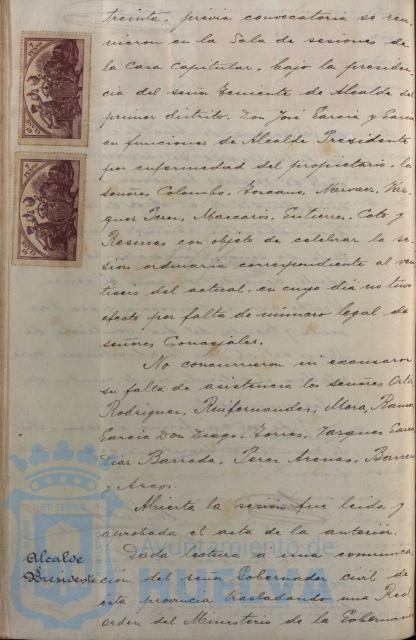 treinta, previa convocatoria se reu-
nieron en la Sala de sesiones de
la Casa Capitular, bajo la presiden-
cia del señor Teniente de Alcalde del
primer distrito, Don José García y García
en funciones de Alcalde Presidente
por enfermedad del propietario, los
señores Colombo, Toscano, Narvaez, Vaz-
quez Perez, Mascarós, Gutierrez, Coto y
Resinas con objeto de celebrar la se-
sion ordinaria correspondiente al vein
tiseis del actual, en cuyo dia no tuvo
efecto por falta de número legal de
señores Concejales.
No concurrieron ni excusaron
su falta de asistencia los señores Ortiz
Rodriguez, Ruifernandez, Mora, Ramos
García Don Diego, Torres, Vazquez
Diaz Barreda, Perez Arenas, Barrera
y Arcos.
Abierta la sesión fue leida y
aprobada el acta de la anterior.
Alcalde
Presidente
Dada lectura a una comunica
cion del señor Gobernador civil de
esta provincia trasladando una Real
orden del Ministerio de la Gobernacion
Ayuntamiento de
HUELVA